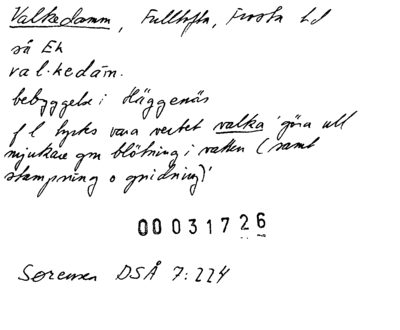 Valkedamm, Fulltofta, Frosta hd
så Ek
val·kedam.
bebyggelse i Häggenäs
f l tycks vara verbet valka 'göra ull
mjukare gm blötning i vatten (samt
stampning o gnidning)'
00031726
Sorensen DSÅ 7:224